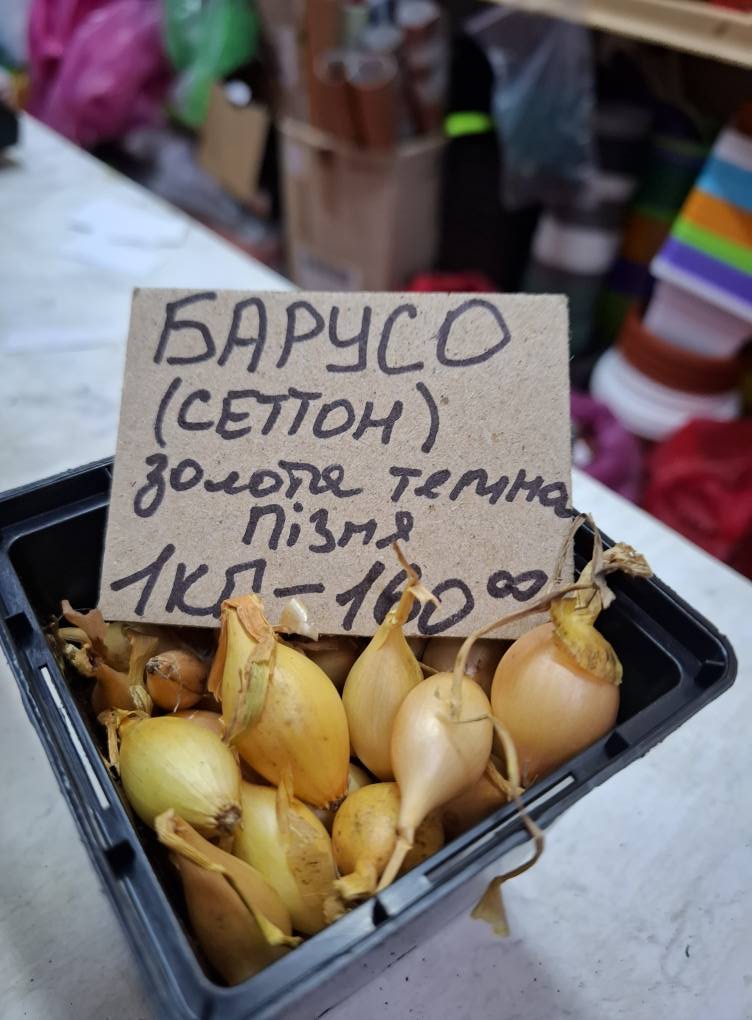 БАРУСО
(СЕТТОН)
золота темна
пізня
1КГ-160⁰⁰